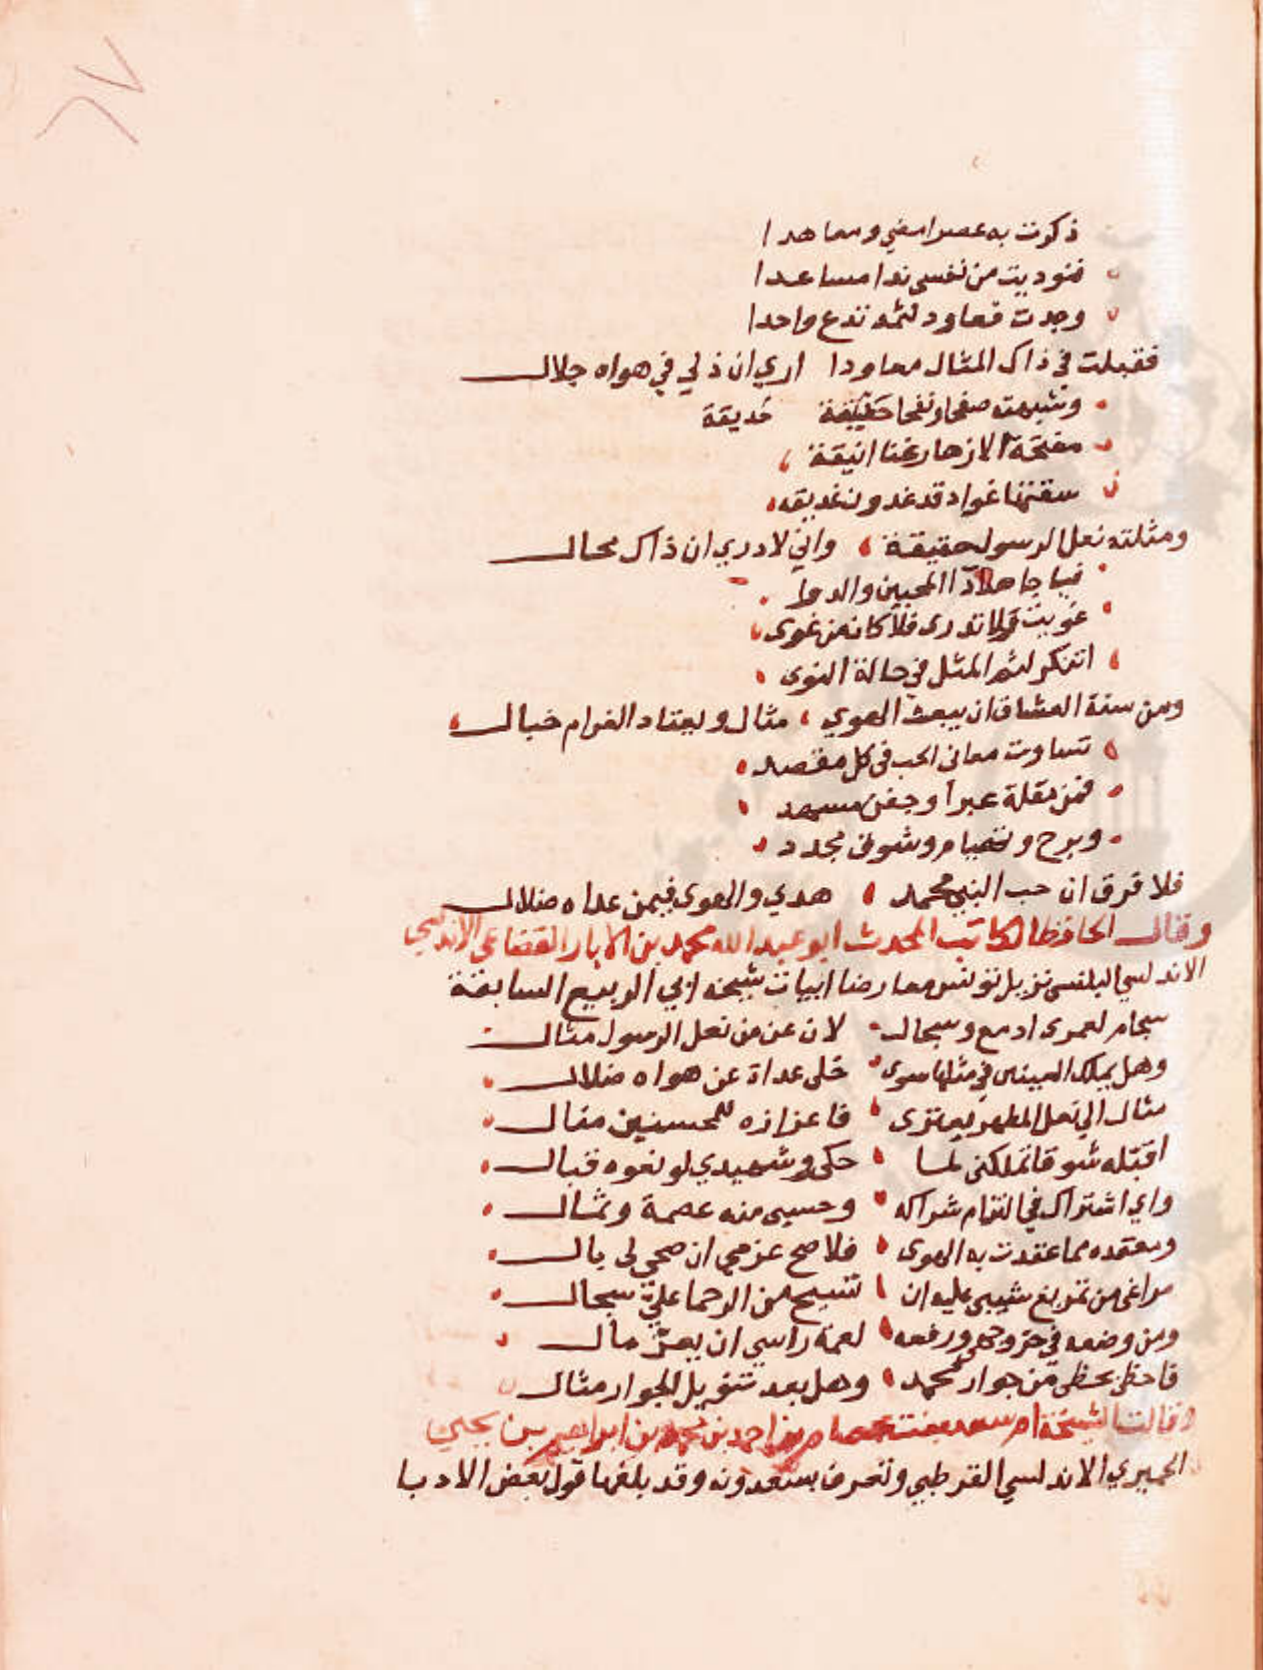 ٦٧
ذكرت به عصرا مضي ومعاهدا
فنوديت من نفسي ندا مساعدا
وجدت فعاود لثمه تدع واحدا
فقبلت في ذاك المثال معاودا اري ان ذلي في هواه جلال
وشبهته صفحا ونفحا حديقة
مفتحة الازهار غنا انيقة
سقتها غواد قد غدون غديقه
ومثلته نعل الرسول حقيقة واني لادري ان ذاك محال
فيا جاهلا دا المحبين والدوا
غويت ولا تدري فلا كان من غوى
اتنكر لثم المثل في حالة النوى
ومن سنة العشاق ان يبعث الهوي مثال ويعتاد الغرام خيال
تساوت معاني الحب في كل مقصد
فمن مقلة عبرا وجفن مسهد
وبرح وتهيام وشوق مجدد
فلا فرق ان حب النبي محمد هدي والهوى فيمن عداه ضلال
وقال الحافظ الكاتب المحدث ابو عبد الله محمد بن الابار القضاعي الاندلسي
الاندلسي البلنسي نزيل تونس معارضا ابيات شيخه ابي الربيع السابقة
سجام لعمري ادمع وسجال لان عن من نعل الرسول مثال
وهل يملك العينين في مثلها سوى خلي عداه عن هواه ضلال
مثال الي نعل المطهر يعتزى فاعزازه للمحسنين مقال
اقبله شوقا تملكني لما حكى وشهيدي لو نغوه قبال
واي اشتراك في التزام شراكه وحسبي منه عصمة وثمال
ومعتمده مما عقدت به الهوى فلا صح عزمي ان صحي لي بال
مراغي من تمريغ شيبي عليه ان تسيح من الرحما علي سجال
ومن وضعه في حر وجهي ورفعه لعمة راسي ان يعز مال
فاحظي بحظي من جوار محمد وهل بعد تنويل الجوار مثال
وقالت الشيخة ام سعد بنت عصام بن احمد بن محمد بن ابراهيم بن يحيى
الحميري الاندلسي القرطبي وتعرف بسعدونه وقد بلغها قول بعض الادبا